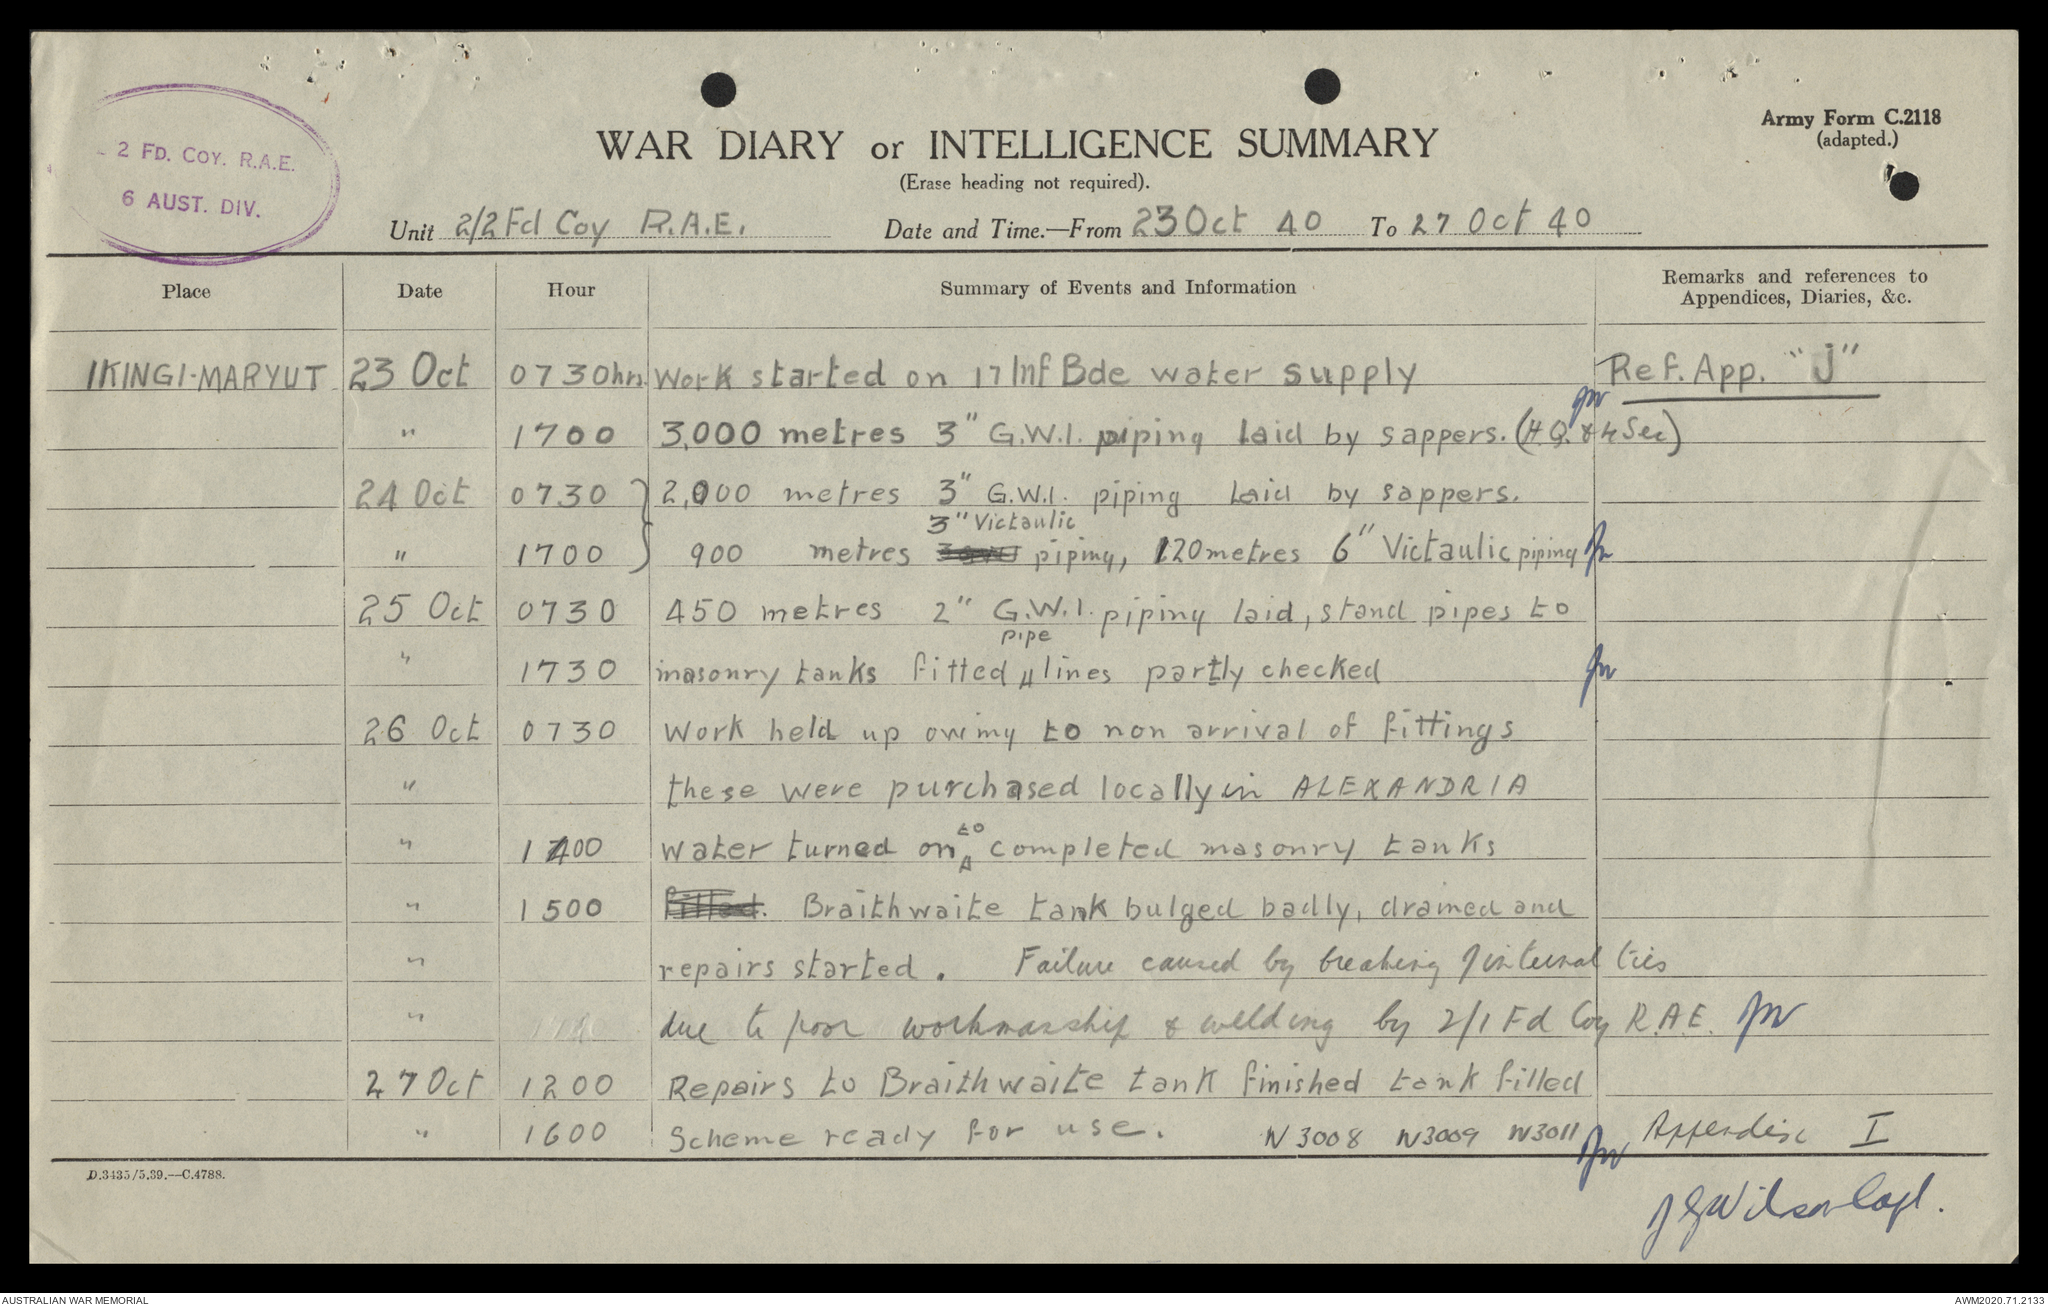 Army Form C.2118
(adapted.)
2 FD. COY. R.A.E.
6 AUST. DIV.
WAR DIARY or INTELLIGENCE SUMMARY
(Erase heading not required).
Unit 2/2 Fd Coy R.A.E. Date and Time.—From 23 Oct 40 To 27 Oct 40
Place Date Hour Summary of Events and Information Remarks and references to
Appendices, Diaries, &c.
IKINGI-MARYUT 23 Oct 0730hrs. Work started on 17 Inf Bde water supply Ref. App. "J"
" 1700 3,000 metres 3" G.W.I. piping laid by sappers. (H.Q. & 4 Sec)
24 Oct 0730 } 2,000 metres 3" G.W.I. piping laid by sappers.
3" Victaulic
" 1700 } 900 metres piping, 120 metres 6" Victaulic piping
25 Oct 0730 450 metres 2" G.W.I. piping laid, stand pipes to
pipe
" 1730 masonry tanks fitted lines partly checked
26 Oct 0730 Work held up owing to non arrival of fittings
" these were purchased locally in ALEXANDRIA
to
" 1400 water turned on completed masonry tanks
" 1500 filled. Braithwaite tank bulged badly, drained and
" repairs started. Failure caused by breaking of internal ties
" due to poor workmanship & welding by 2/1 Fd Coy R.A.E.
27 Oct 1200 Repairs to Braithwaite tank finished tank filled
" 1600 Scheme ready for use. N3008 N3009 N3011 Appendix I
D.3435/5.39.—C.4788.
J G Wilson Capt.
AUSTRALIAN WAR MEMORIAL AWM2020.71.2133